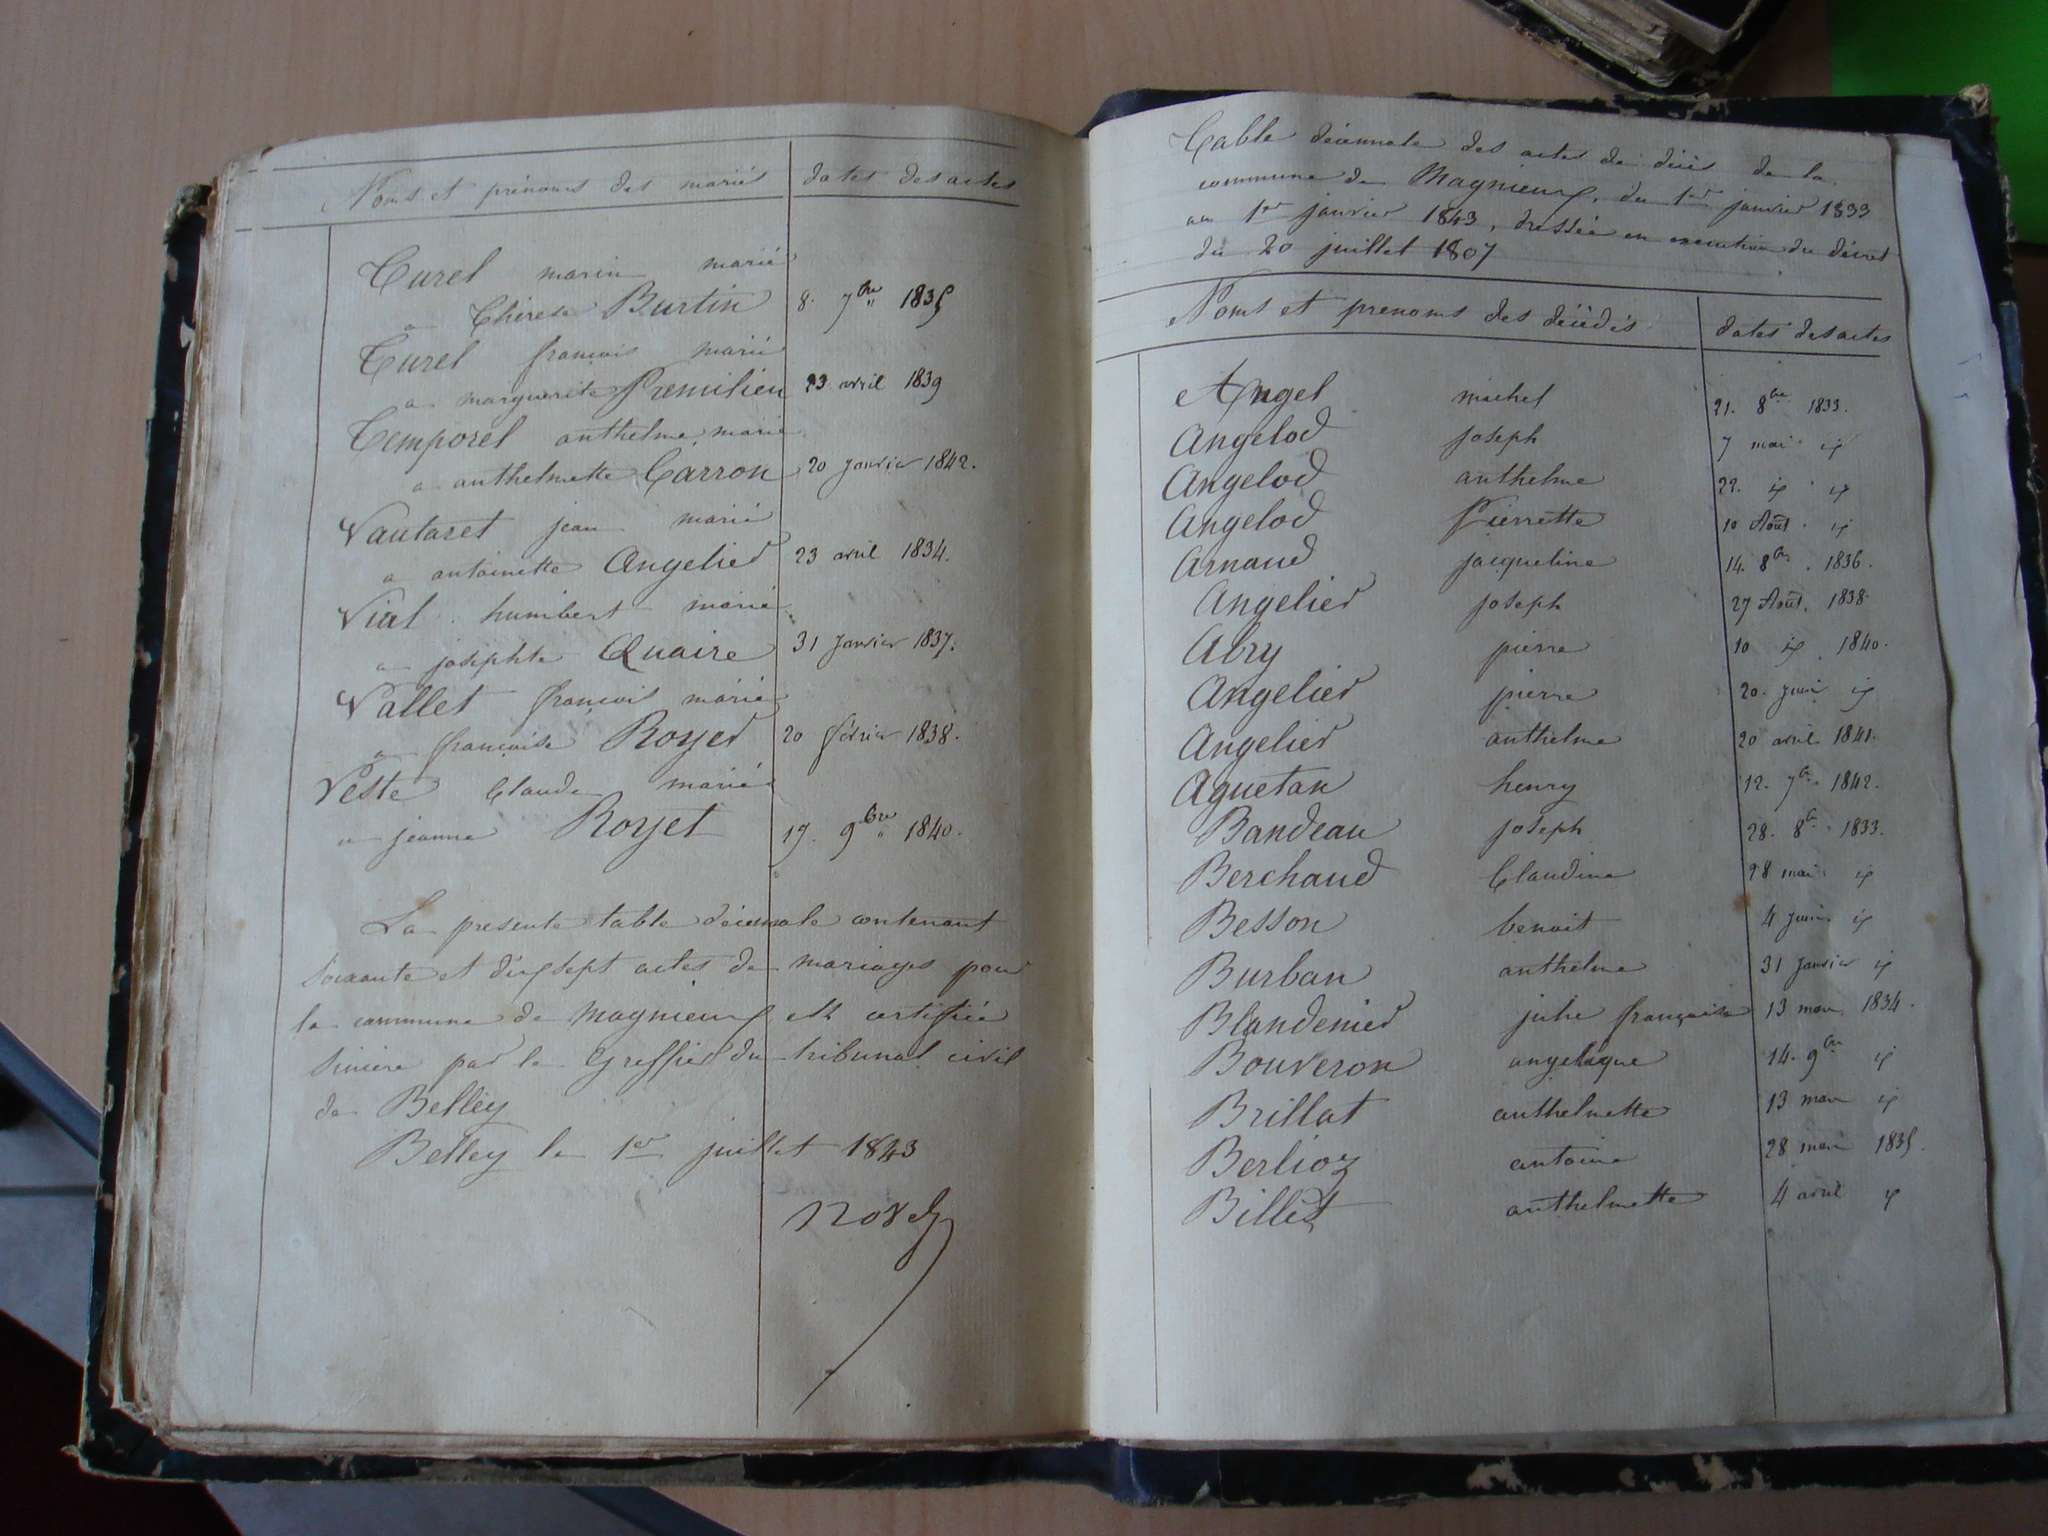 Noms et prénoms des mariés dates des actes
Curel marin marié
a Thérèse Burtin 8. 7bre 1835
Curel françois marié
a marguerite Premilieu 23 avril 1839
Temporel anthelme marié
a anthelmette Carron 20 Janvier 1842.
Vautaret jean marié
a antoinette Angelier 23 avril 1834.
Vial humbert marié
a josephte Quaire 31 Janvier 1837.
Vallet françois marié
a françoise Royer 20 février 1838.
Veste Claude marié
a jeanne Royet 17. 9bre 1840.
La presente table décennale contenant
soixante et dix sept actes de mariages pour
la commune de magnieux est certifiée
sincère par le Greffier du tribunal civil
de Belley
Belley le 1er juillet 1843
Table décennale des actes de décès de la
commune de Magnieux, du 1er janvier 1833
au 1er janvier 1843, dressée en execution du décret
du 20 juillet 1807
Noms et prenoms des décédés dates des actes
Angel michel 21. 8bre 1833.
Angelod joseph 7 mai id
Angelod anthelme 22. id id
Angelod Pierrette 10 Août id
Arnaud jacqueline 14. 8bre 1836.
Angelier joseph 27 Août 1838.
Abry pierre 10 id 1840.
Angelier pierre 20. juin id
Angelier anthelme 20 avril 1841.
Aguetan henry 12. 7bre 1842.
Bandeau joseph 28. 8bre 1833.
Berchaud Claudine 28 mai id
Besson benoit 4 juin id
Burban anthelme 31 janvier id
Blandenier julie françoise 13 mars 1834.
Bouveron angelique 14. 9bre id
Brillat anthelmette 13 mars id
Berlioz antoine 28 mars 1835.
Billet anthelmette 4 avril id